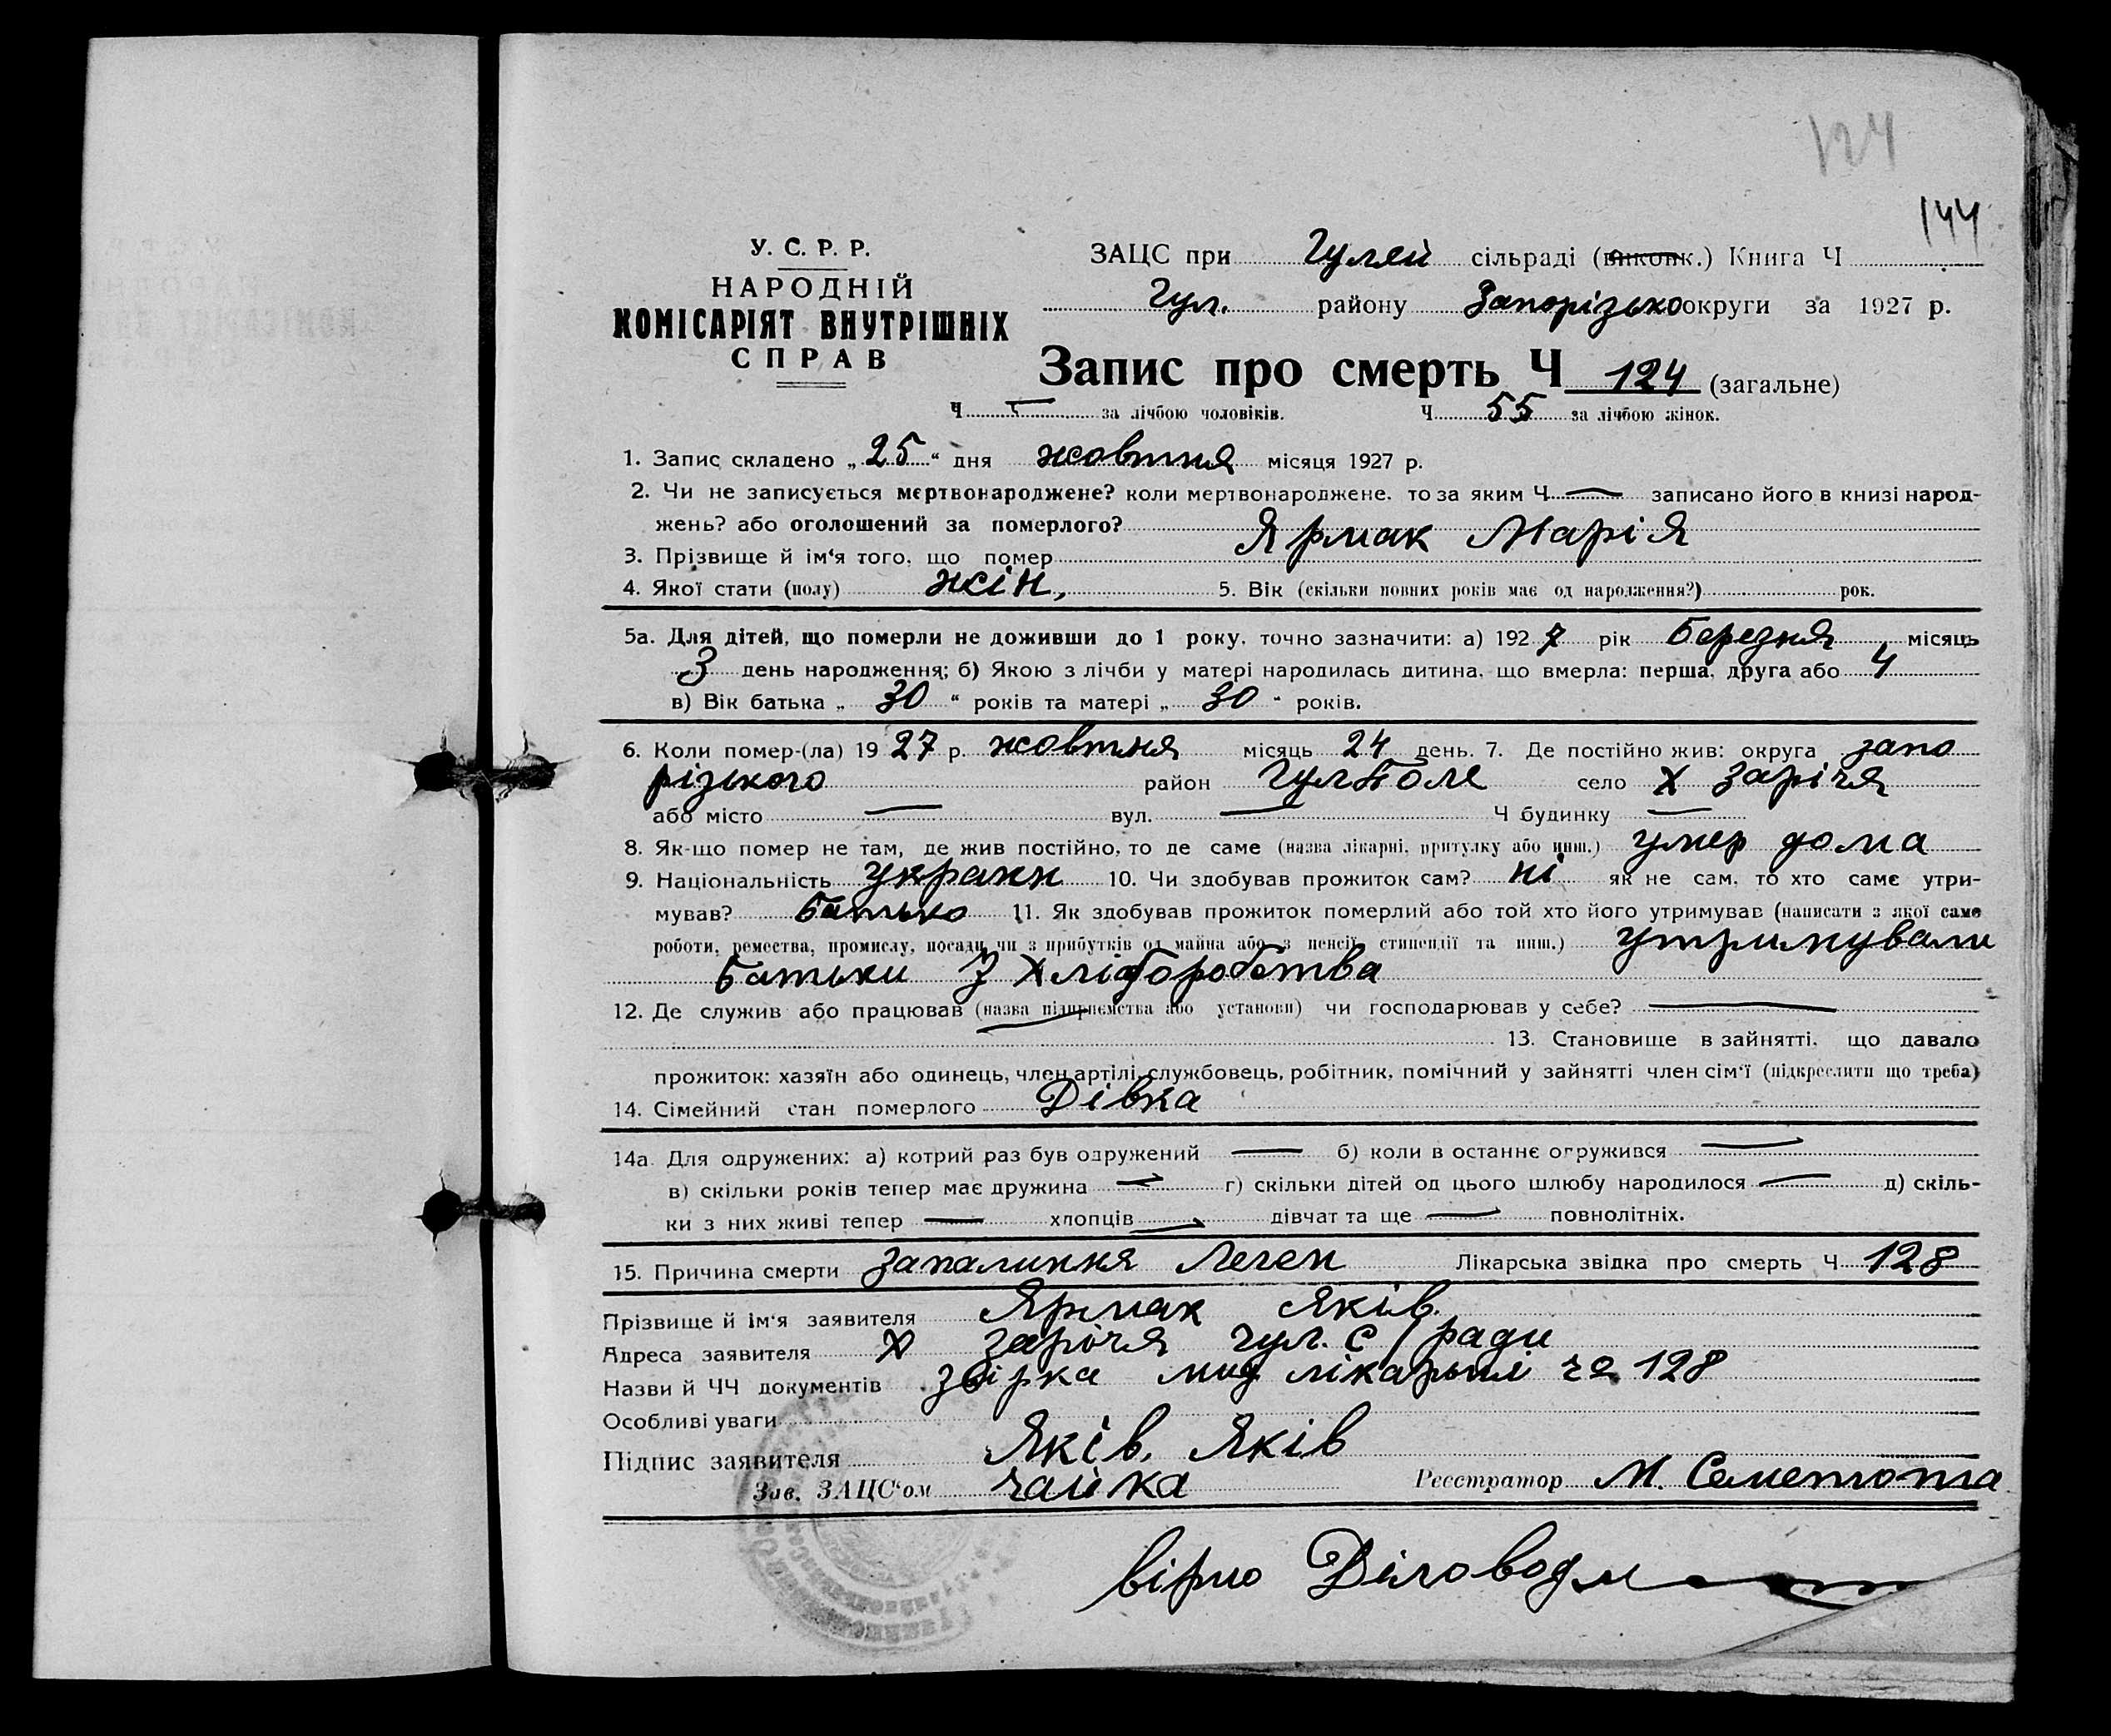 124
144
У. С. Р. Р.
НАРОДНІЙ
КОМІСАРІЯТ ВНУТРІШНІХ
СПРАВ
ЗАЦС при Гуляй сільраді (виконк.) Книга Ч
Гул. району Запорізько округи за 1927 р.
Запис про смерть Ч 124 (загальне)
Ч — за лічбою чоловіків. Ч 55 за лічбою жінок.
1. Запис складено „ 25 “ дня жовтня місяця 1927 р.
2. Чи не записується мертвонароджене? коли мертвонароджене, то за яким Ч — записано його в книзі народ-
жень? або оголошений за померлого?
3. Прізвище й ім‘я того, що помер Ярмак Марія
4. Якої стати (полу) жін, 5. Вік (скільки повних років має од народження?) рок.
5а. Для дітей, що померли не доживши до 1 року, точно зазначити: а) 192 7 рік Березня місяць
3 день народження; б) Якою з лічби у матері народилась дитина, що вмерла: перша, друга або 4
в) Вік батька „ 30 “ років та матері „ 30 “ років.
6. Коли помер-(ла) 19 27 р. жовтня місяць 24 день. 7. Де постійно жив: округа запо
різького район ГулПоле село Х Зарічя
або місто — вул. — Ч будинку —
8. Як-що помер не там, де жив постійно, то де саме (назва лікарні, притулку або инш.) умер дома
9. Національність украин 10. Чи здобував прожиток сам? ні як не сам, то хто саме утри-
мував? Батько 11. Як здобував прожиток померлий або той хто його утримував (написати з якої саме
роботи, ремества, промислу, посади чи з прибутків од майна або з пенсії, стипендії та инш.) утримували
Батьки З Хліборобства
12. Де служив або працював (назва підприємства або установи) чи господарював у себе? —
13. Становище в зайнятті, що давало
прожиток: хазяїн або одинець, член артілі, службовець, робітник, помічний у зайнятті член сім‘ї (підкреслити що треба)
14. Сімейний стан померлого Дівка
14а. Для одружених: а) котрий раз був одружений — б) коли в останнє огружився —
в) скільки років тепер має дружина — г) скільки дітей од цього шлюбу народилося — д) скіль-
ки з них живі тепер — хлопців — дівчат та ще — повнолітніх.
15. Причина смерти Запалиння Леген Лікарська звідка про смерть Ч 128
Прізвище й ім‘я заявителя Ярмак Яків
Адреса заявителя Х Зарічя Гул. С/ради
Назви й ЧЧ документів 128
Особливі уваги
Підпис заявителя Яків. Яків
Зав. ЗАЦС‘ом Чайка Реєстратор М.
вірно Діловод